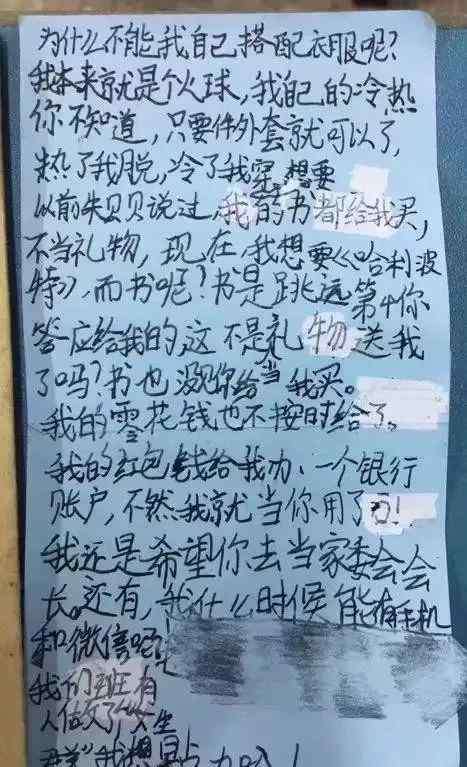 为什么不能我自己搭配衣服呢？
我本来就是个火球，我自己的冷热
你不知道，只要件外套就可以了，
热了我脱，冷了我穿 想要
以前朱贝贝说过，我的书都给我买，
不当礼物，现在，我想要《哈利波
特》，而书呢？书是跳远第4你
答应给我的，这不是礼物送我
了吗？书也没见你给我买。
我的零花钱也不按时给了。
我的红包钱给我办一个银行
账户，不然我就当你用了！
我还是希望你去当家委会会
长。还有，我什么时候能有手机
和微信呢！
我们班有
人做了"女生
群"我想